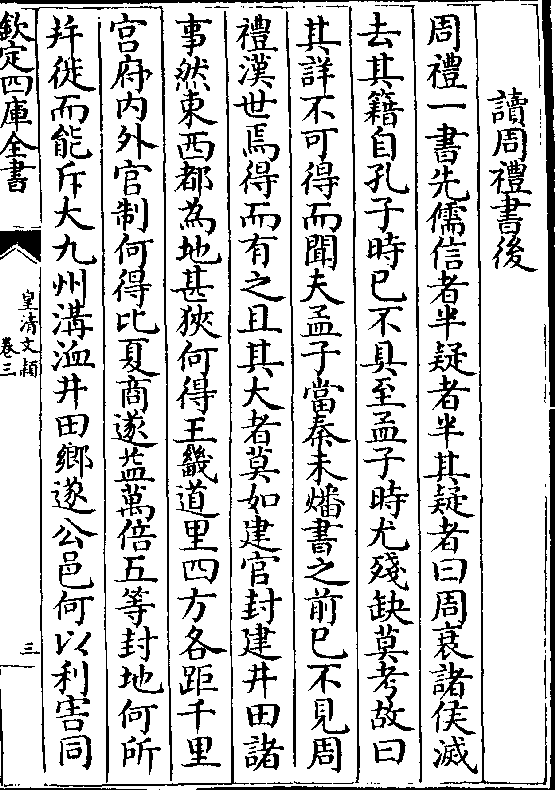 讀周禮書後
周禮一書先儒信者半疑者半其疑者曰周衰諸侯滅
去其籍自孔子時已不具至孟子時尤殘缺莫考故曰
其詳不可得而聞夫孟子當秦未燔書之前已不見周
禮漢世焉得而有之且其大者莫如建官封建井田諸
事然東西都為地甚狹何得王畿道里四方各距千里
宫府内外官制何得比夏商遂葢萬倍五等封地何所
并徙而能斥大九州溝洫井田鄉遂公邑何以利害同
欽定四庫全書
皇清文頴
卷三
三